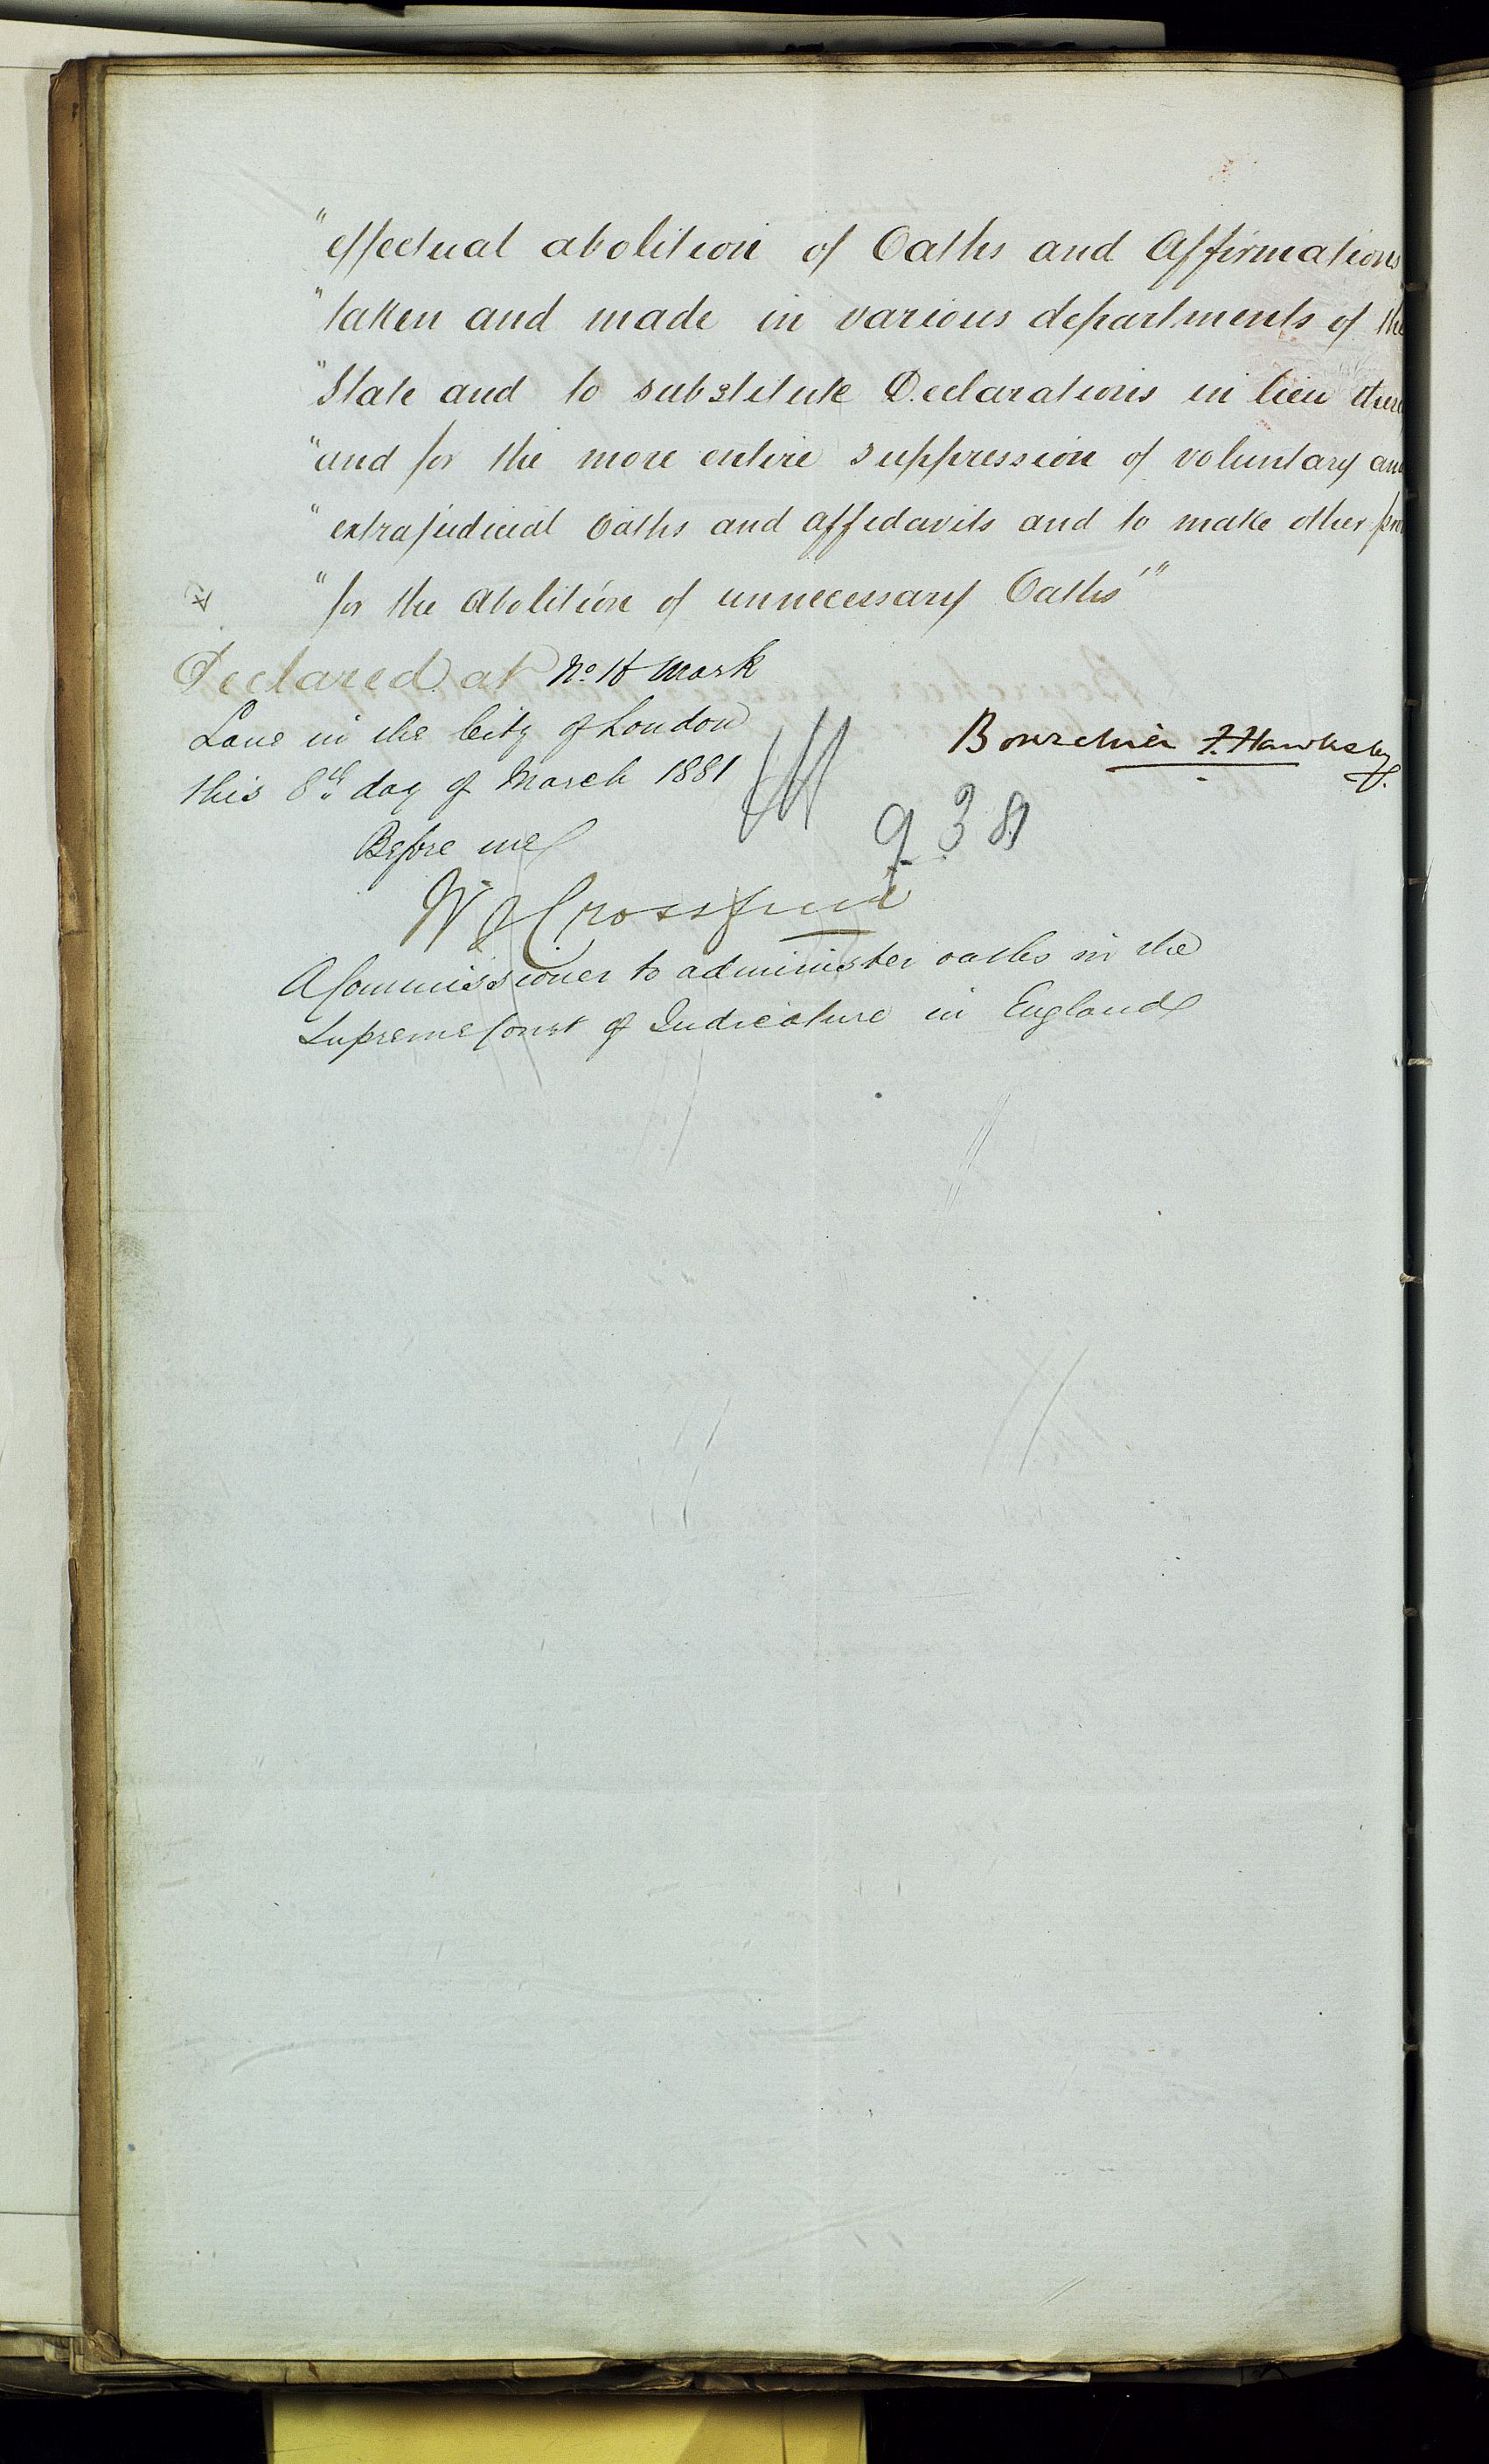 "effectual abolition of Oaths and Affirmations
"taken and made in various departments of the
"State and to substitute Declarations in lieu there
"and for the more entire suppression of voluntary an
"extrajudicial Oaths and affidavits and to make other pro
"for the abolition of unnecessary Oaths"
Declared at No. Mark
Lane in the City of London
this 8th day of March 1881
Bourchier F. Hawksley
Before me
9.3.81
A Commissioner to administer oaths in the
Supreme Court of Judicature in England